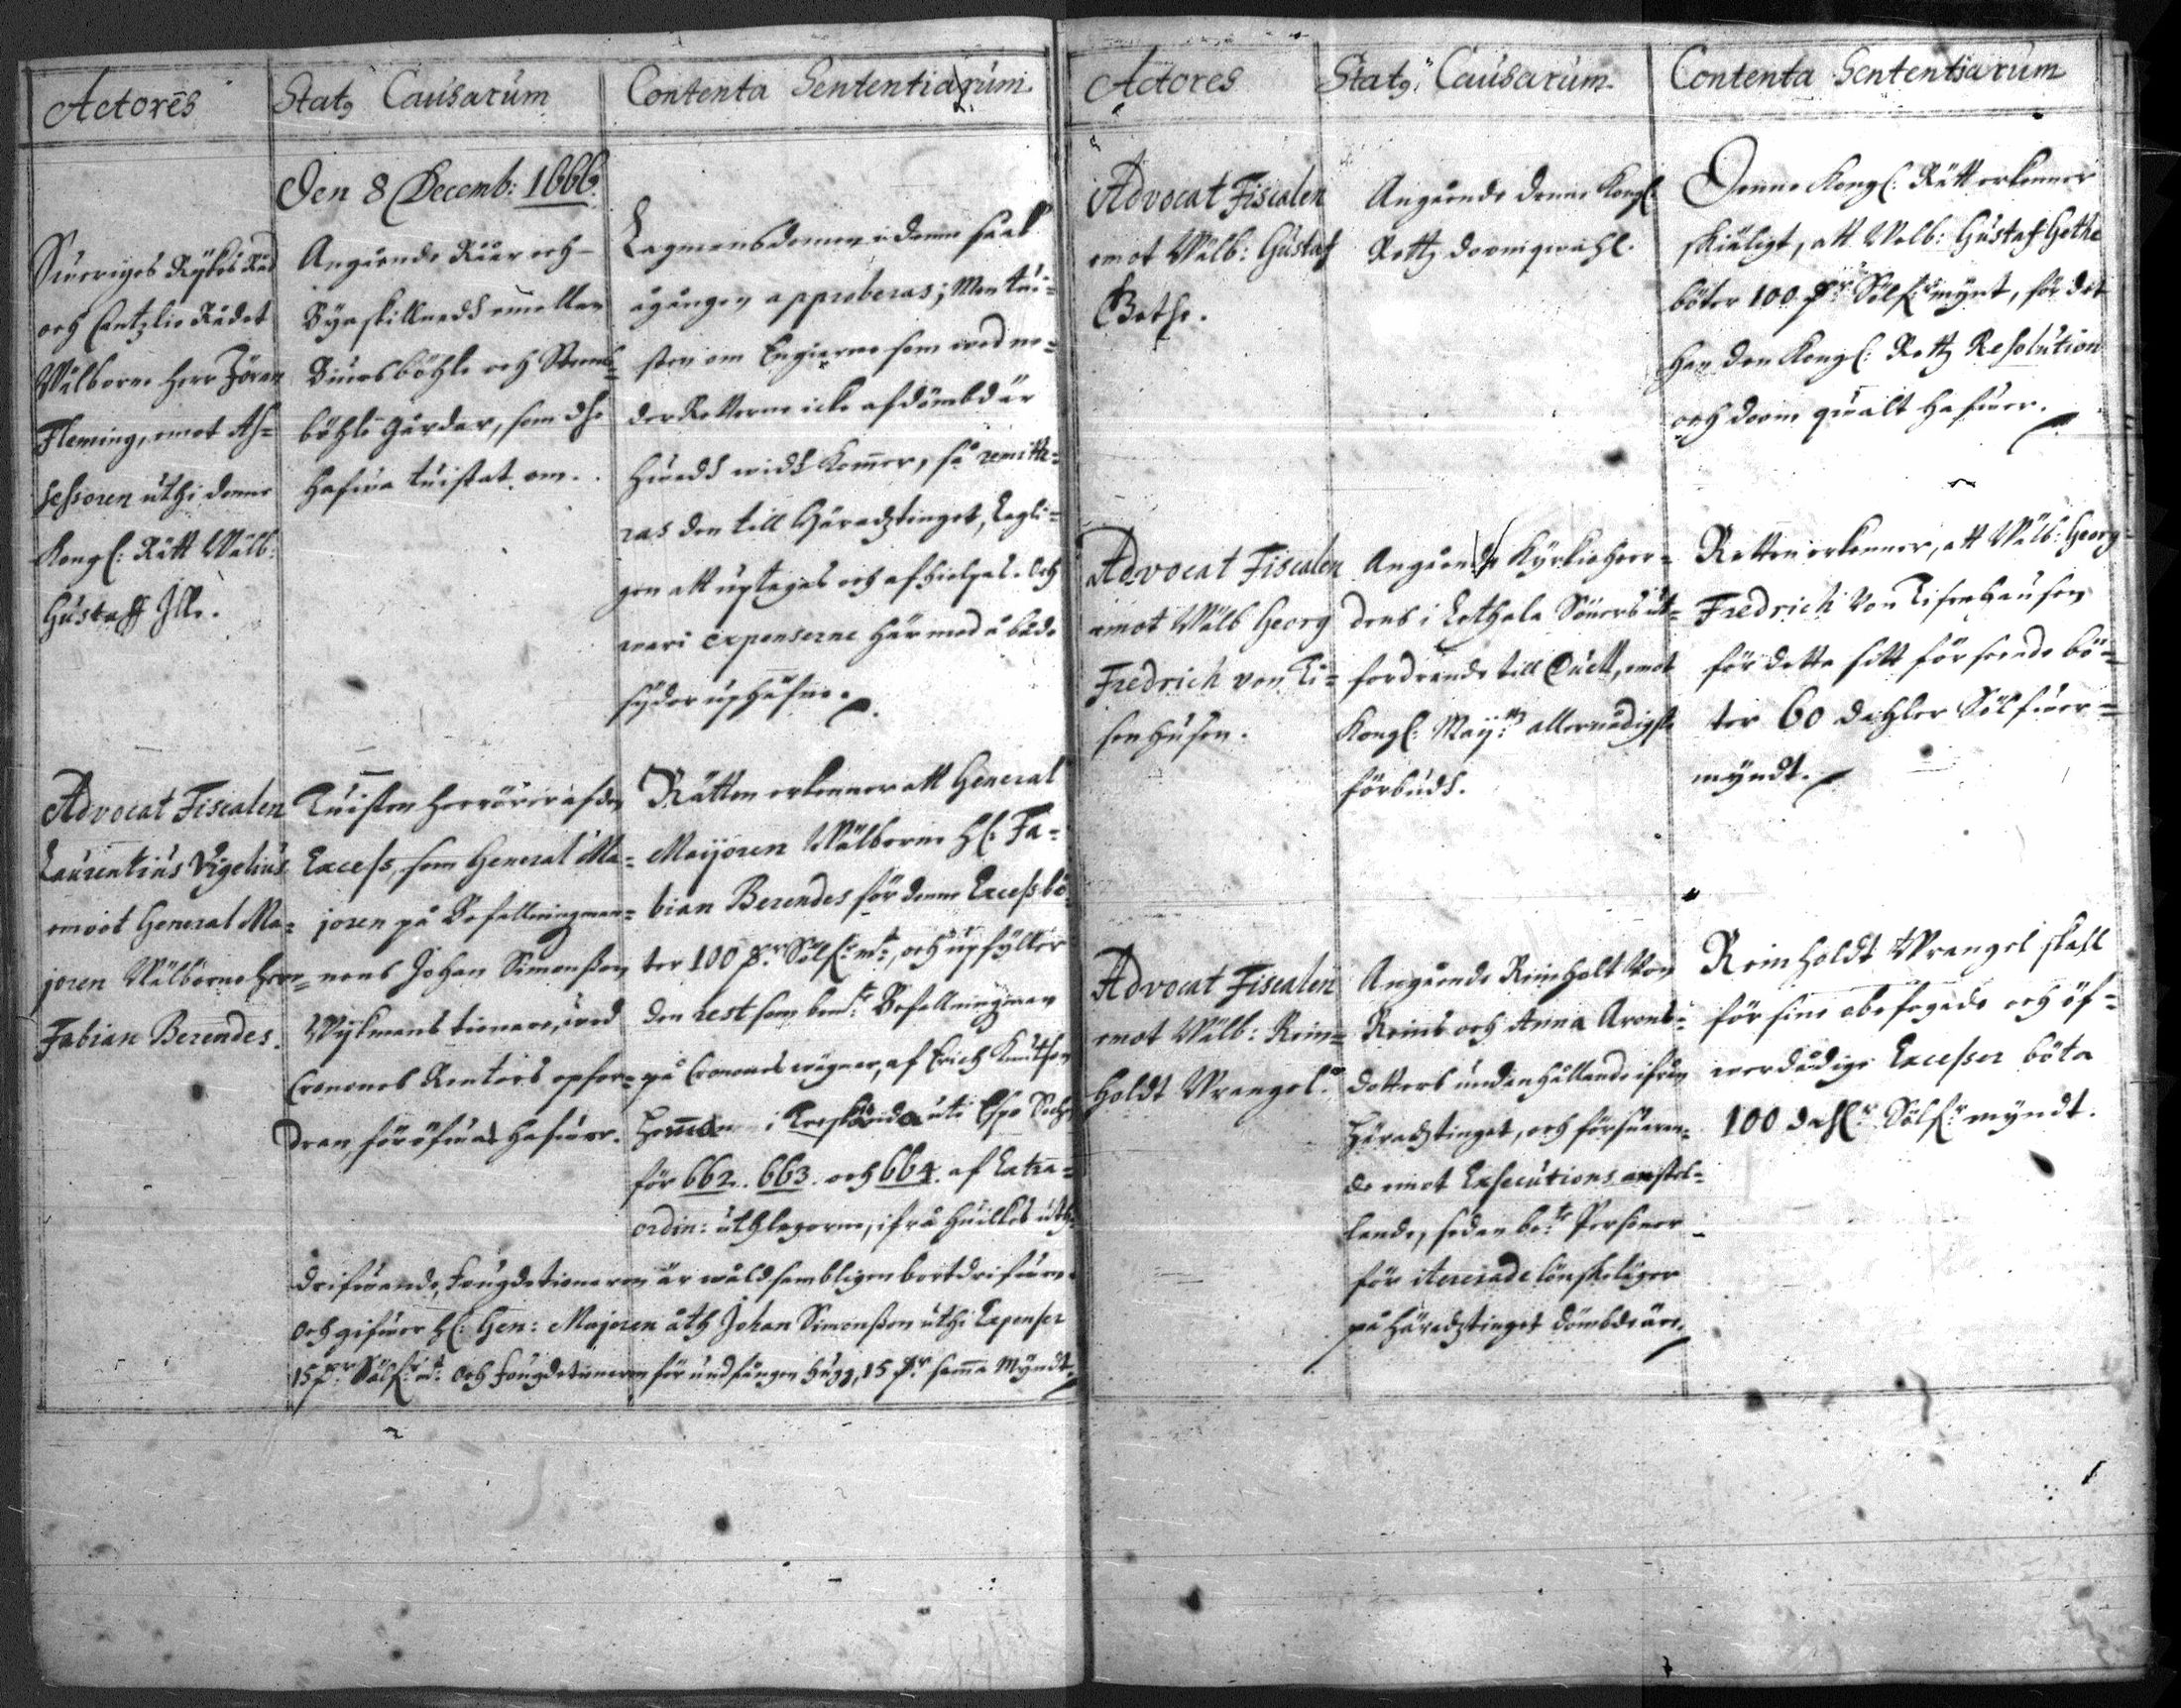 Actores
Statq Causarum
Contenta Sententiarum
Den 8 Decemb: 1666.
Sueriges Rijkes Råd
och Cantzlie Rådet
Wälborne Herr Jöran
Fleming, emot As=
sessoren uthi denne
Kongl: Rätt Wälb:
Gustaff Ille.
Angående Råår och
Byaskillnadt emellan
böhle och
böhle Gårdar, som dhe
hafwa twistat om.
Lagmansdomen i denne saak
ågången approberas; Men twi=
sten om Engierne som wed ne=
der Retterne icke afdömbd är
huadh widh kommer, så remitte=
ras den till Häradztinget, Lagli=
gen att uptagas och afhielpas. Och
ware expenserne här med å både
sydor uphäfne.
Advocat Fiscalen
Laurentius Vigelius
emoot General Ma=
joren Wälborne Herr
Fabian Berendes.
Twisten herrörer af den
Excess, som General Ma=
joren på Befallningzman=
nens Johan Simonsson
Wijkmans tienare, wed
Cronones Rentors opfor=
dran föröfwat hafwer.
Rätten erkenner att General
Maijoren Wälborne H: Fa=
bian Berendes för denne Excess bö=
ter 100 dr. Sölf:r m:t, och upfyller
den rest som bem:te Befallningzman
på Cronones wägnar, af Erich Knutson
Hemman i uti Espo Sochn
för 662. 663. och 664. af Extra=
ordin: uthlagorne, ifrå huilkes uth=
drifwande, Fougdetienaren är wåldsambligen bortdrifwen.
Och gifwer H: Gen: Majoren åth Johan Simonsson uthi Expenser
15 dr. Sölf:r m:t Och Fougdetienaren för undfången hugg, 15 dr samma Myndt.
Actores
Statq Causarum
Contenta Sententiarum
Advocat Fiscalen
emot Wälb: Gustaf
Gethe.
Angående denne Kongl:
Rettz doomqwahl.
Denne Kongl: Rätt erkenner
skiäligt, att Welb: Gustaf Gethe
böter 100 dr. Sölf:r mynt, för det
han den Kongl: Rettz Resolution
och doom qualt hafwer.
Advocat Fiscalen
emot Wälb Georg
Fredrich von Ti=
senhusen.
Angående Kyrkioheer=
dens i Lethala Söners ut=
fordrande till Duell, emot
Kongl: Maij:ttz allernådigste
förbudh.
Retten erkenner, att Wälb: Georg
Fredrich von Tisenhausen
för detta sitt förseende bö=
ter 60 dahler Sölfwer=
myndt.
Advocat Fiscalen
emot Wälb: Rein=
holdt Wrangel.
Angående Reinholt von
Reins och Anna Arens=
dotters undanhållande ifrån
Häradztinget, och förswaran=
de emot Executions anstel=
lande, sedan be:te Personer
för itererade lönskeläger
på Häradztinget dömbde äre.
Reinholdt Wrangel skall
för sine obefogade och öf=
werdådige Excesser böta
100 dahl:r Sölf:r myndt.